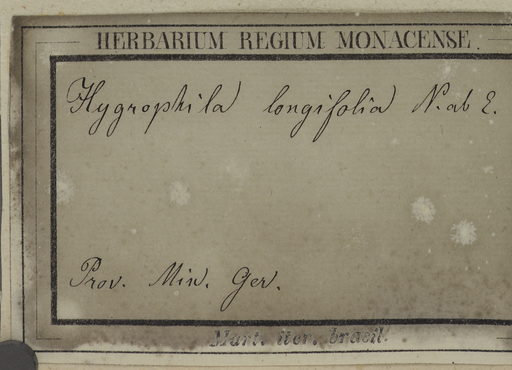 HERBARIUM REGIUM MONACENSE.
Hygrophila longifolia N. ab E.
Prov. Min. Ger.
Mart. iter. brasil.